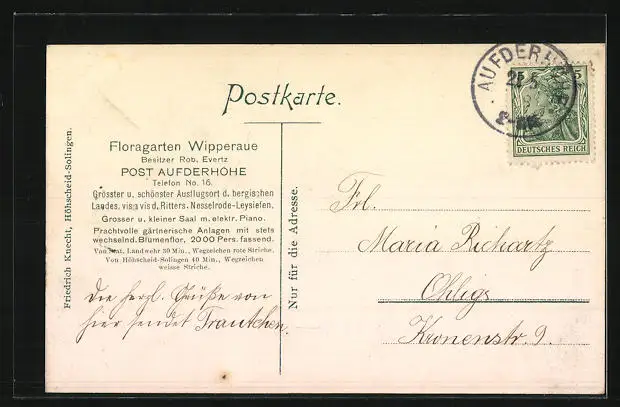 Postkarte.
Floragarten Wipperaue
Besitzer Rob. Evertz
POST AUFDERHÖHE
Telefon No. 16.
Grösster u. schönster Ausflugsort d. bergischen
Landes, vis à vis d. Ritters. Nesselrode-Leysiefen.
Grosser u. kleiner Saal m. elektr. Piano.
Prachtvolle gärtnerische Anlagen mit stets
wechselnd. Blumenflor, 2000 Pers. fassend.
Landwehr 30 Min., Wegzeichen rote Striche.
Von Höhscheid-Solingen 40 Min., Wegzeichen
weisse Striche.
Die herzl. Grüße von
hier sendet Trautchen.
Friedrich Knecht, Höhscheid-Solingen.
Nur für die Adresse.
AUFDERHÖHE
5
DEUTSCHES REICH
Frl.
Maria Richartz
Ohligs
Kronenstr. 9.